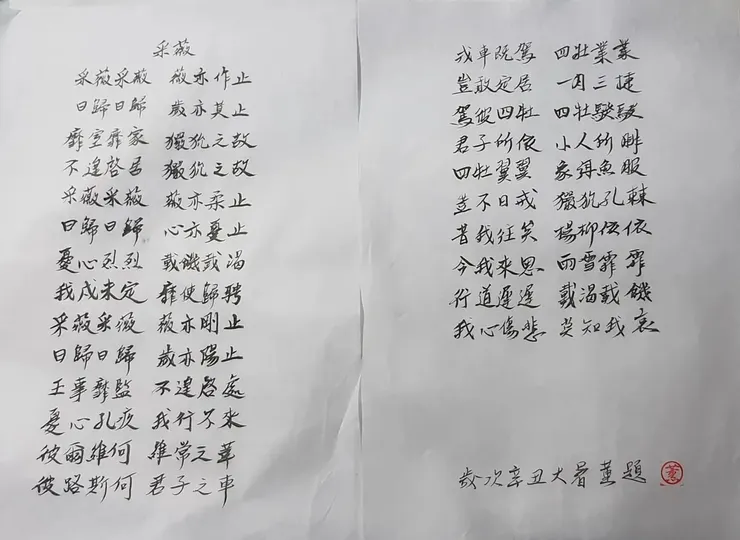 采薇
采薇采薇 薇亦作止
曰歸曰歸 歲亦莫止
靡室靡家 玁狁之故
不遑啓居 玁狁之故
采薇采薇 薇亦柔止
曰歸曰歸 心亦憂止
憂心烈烈 載饑載渴
我戍未定 靡使歸聘
采薇采薇 薇亦剛止
曰歸曰歸 歲亦陽止
王事靡盬 不遑啓處
憂心孔疚 我行不來
彼爾維何 維常之華
彼路斯何 君子之車
戎車既駕 四牡業業
豈敢定居 一月三捷
駕彼四牡 四牡騤騤
君子所依 小人所腓
四牡翼翼 象弭魚服
豈不日戒 玁狁孔棘
昔我往矣 楊柳依依
今我來思 雨雪霏霏
行道遲遲 載渴載饑
我心傷悲 莫知我哀
歲次辛丑大暑董題
董